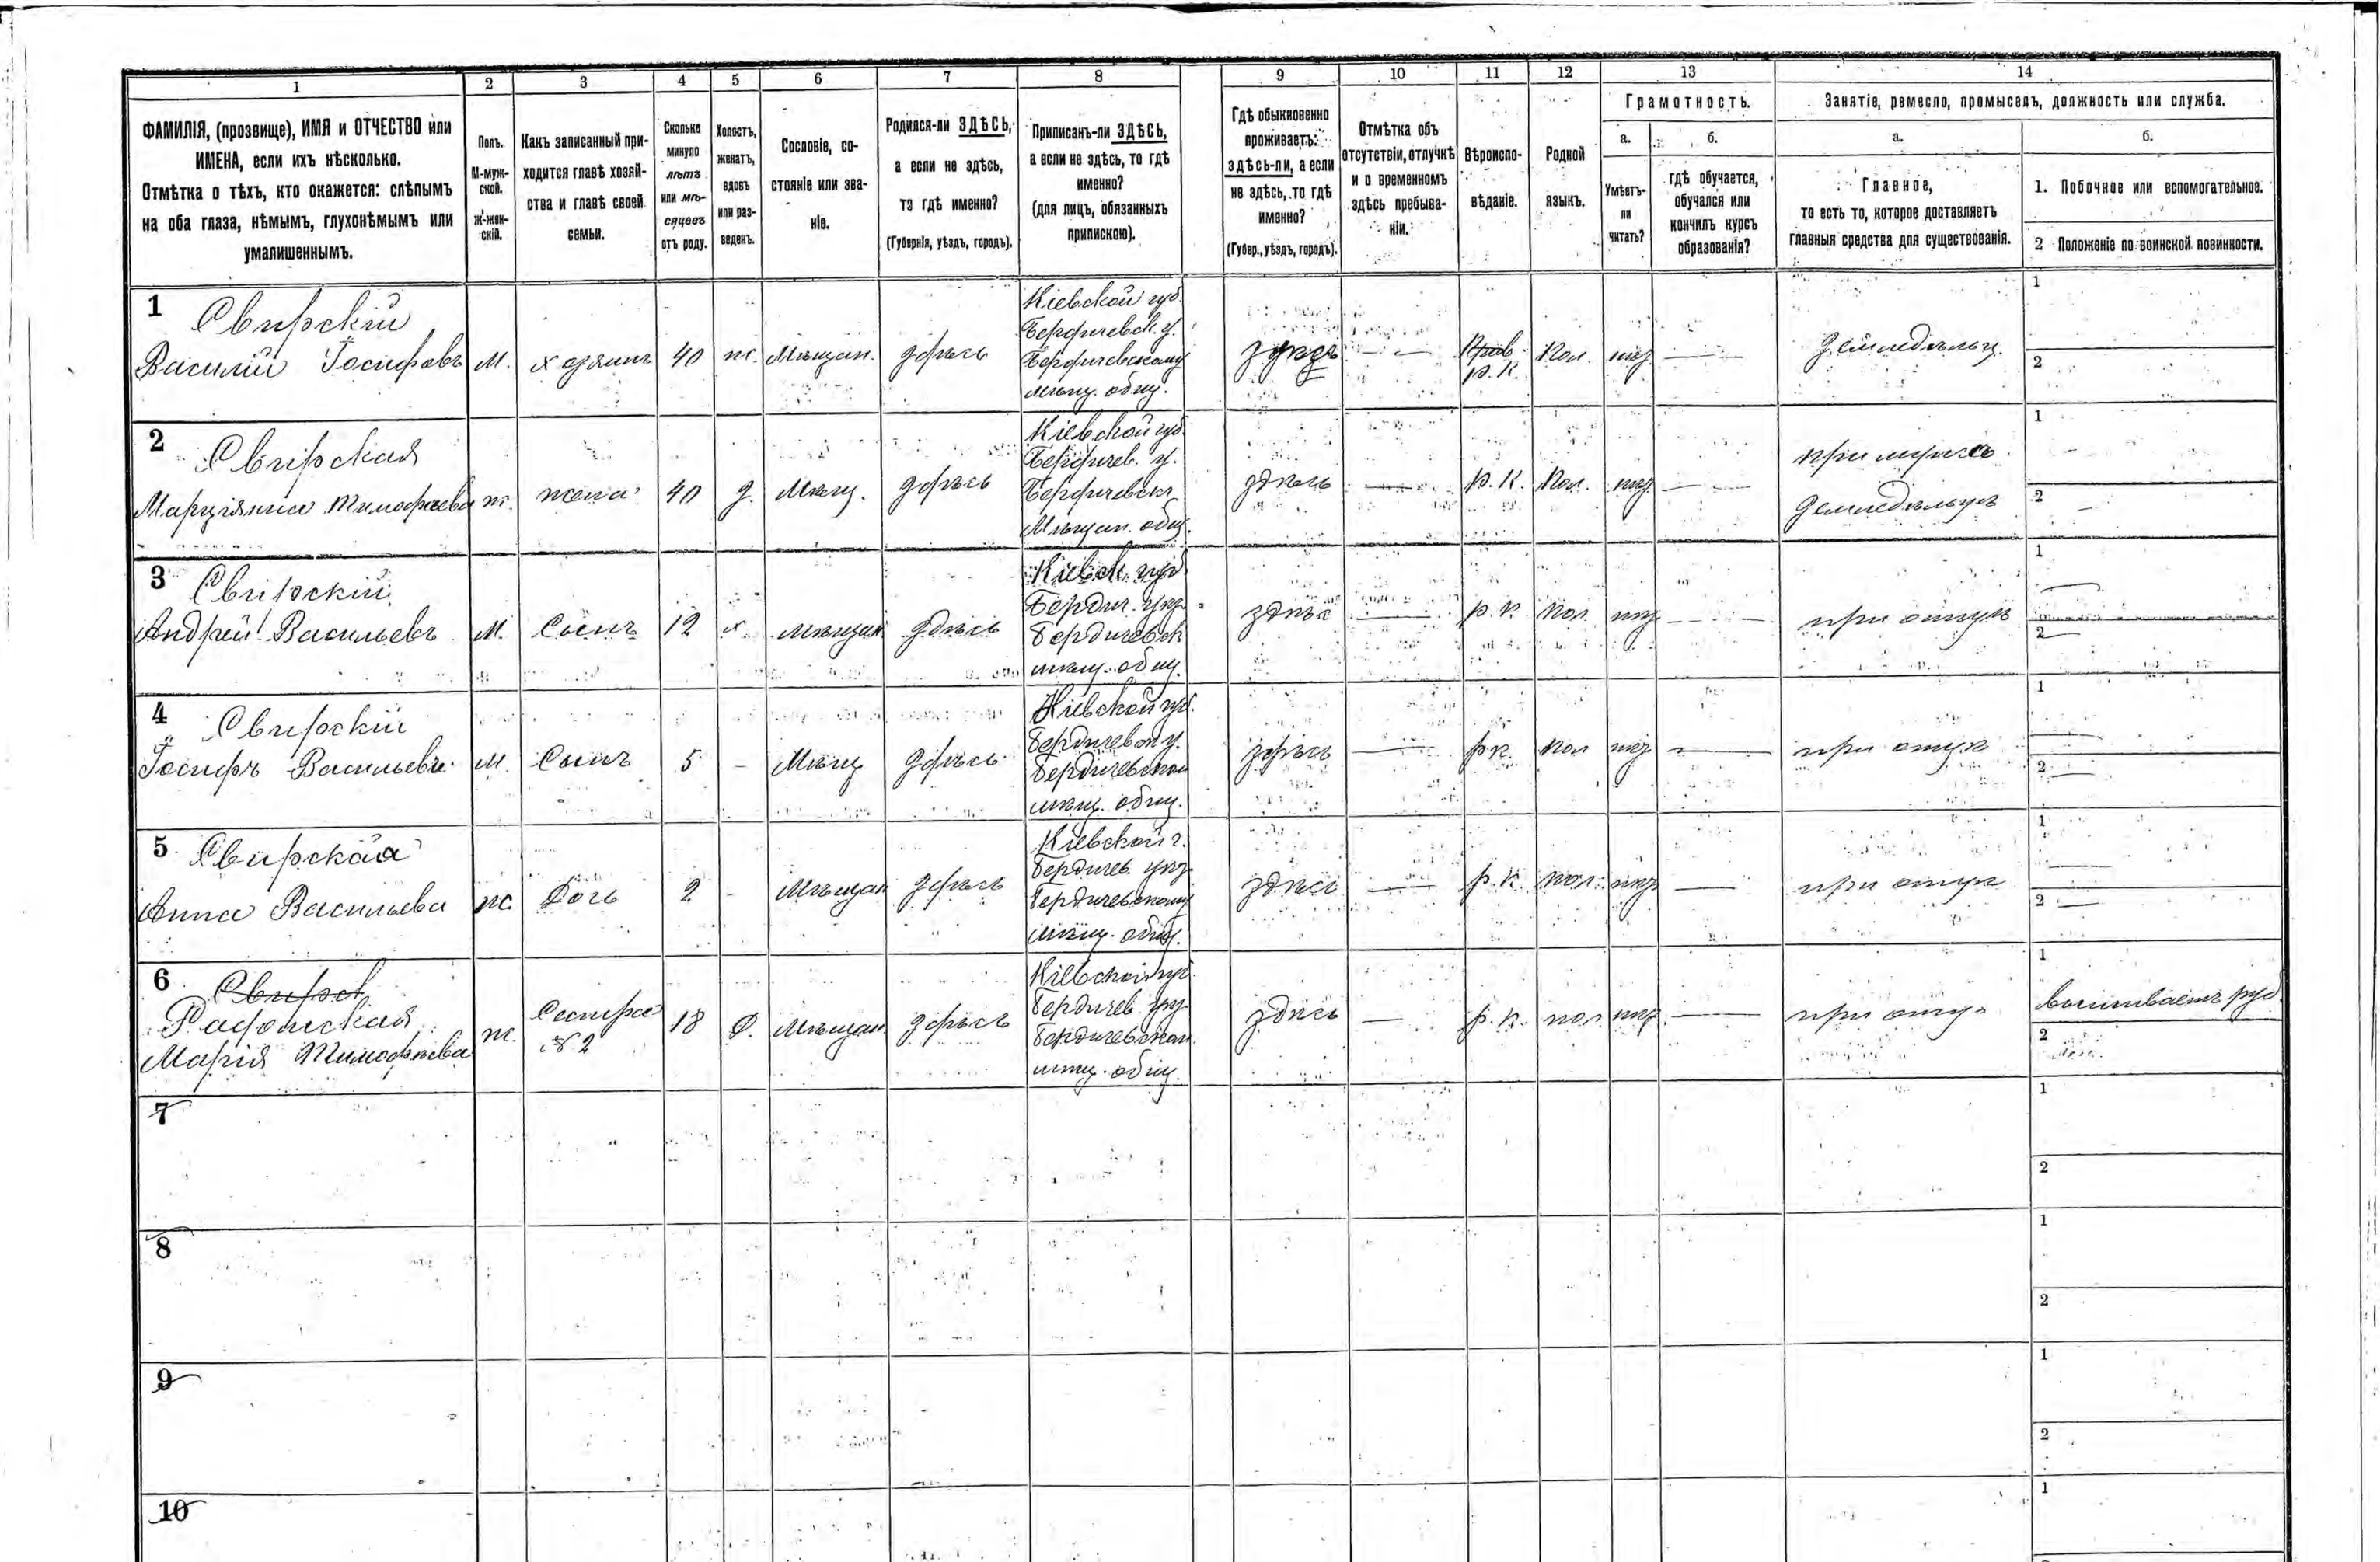 1 2 3 4 5 6 7 8 9 10 11 12 13 14
ФАМИЛІЯ, (прозвище), ИМЯ и ОТЧЕСТВО или
ИМЕНА, если ихъ нѣсколько.
Отмѣтка о тѣхъ, кто окажется: слѣпымъ
на оба глаза, нѣмымъ, глухонѣмымъ или
умалишеннымъ.
Полъ.
М-муж-
ской.
Ж-жен-
скій.
Какъ записанный при-
ходится главѣ хозяй-
ства и главѣ своей
семьи.
Сколько
минуло
лѣтъ
или мѣ-
сяцевъ
отъ роду.
Холостъ,
женатъ,
вдовъ
или раз-
веденъ.
Сословіе, со-
стояніе или зва-
ніе.
Родился-ли ЗДѢСЬ,
а если не здѣсь,
то гдѣ именно?
(Губернія, уѣздъ, городъ).
Приписанъ-ли ЗДѢСЬ,
а если не здѣсь, то гдѣ
именно?
(для лицъ, обязанныхъ
припискою).
Гдѣ обыкновенно
проживаетъ:
здѣсь-ли, а если
не здѣсь, то гдѣ
именно?
(Губер., уѣздъ, городъ).
Отмѣтка объ
отсутствіи, отлучкѣ
и о временномъ
здѣсь пребыва-
ніи.
Вѣроиспо-
вѣданіе.
Родной
языкъ.
Грамотность.
а.
Умѣетъ-
ли
читать?
б.
гдѣ обучается,
обучался или
кончилъ курсъ
образованія?
Занятіе, ремесло, промыселъ, должность или служба.
а.
Главное,
то есть то, которое доставляетъ
главныя средства для существованія.
б.
1. Побочное или вспомогательное.
2 Положеніе по воинской повинности.
1 Свирскій
Василій Іосифовъ
М.
хозяинъ
40
ж.
Мѣщан.
здѣсь
Кіевской губ.
Бердичевск. у.
Бердичевскому
мѣщ. общ.
здѣсь
— —
Прав.
р. к.
Пол.
—
Земледѣлец
1
2
2 Свирская
Марціянна Тимофѣева
ж.
жена
40
з.
Мѣщ.
здѣсь
Кіевской губ.
Бердичев. у.
Бердичевск
Мѣщан. общ.
здѣсь
—
р. к.
Пол.
—
при мужѣ
Земледѣлецъ
1
2
3 Свирскій
Андрей Васильевъ
М.
Сынъ
12
х.
мѣщан
здѣсь
Кіевск. губ
Бердич. у.
Бердичевск
мѣщ. общ.
здѣсь
—
р. к.
Пол
—
при отцѣ
1
2
4 Свирскій
Іосифъ Васильевъ
М.
Сынъ
5
-
Мѣщ
здѣсь
Кіевской губ.
Бердичевск у.
Бердичевском
мѣщ. общ.
здѣсь
—
р к.
пол
—
при отцѣ
1
2
5 Свирская
Анна Васильева
ж.
Дочь
2
-
Мѣщан
здѣсь
Кіевской г.
Бердичев.
Бердичевскому
мѣщ. общ.
здѣсь
—
р. к
пол.
—
при отцѣ
1
2
6 Свирск
Радомская
Марія Тимофѣева
ж.
Сестра
№ 2
18
Мѣщан.
здѣсь
Кіевской губ.
Бердичев.
Бердичевском
мѣщ. общ.
здѣсь
—
р. к.
пол
—
при отцѣ
1
2
7
1
2
8
1
2
9
1
2
10
1